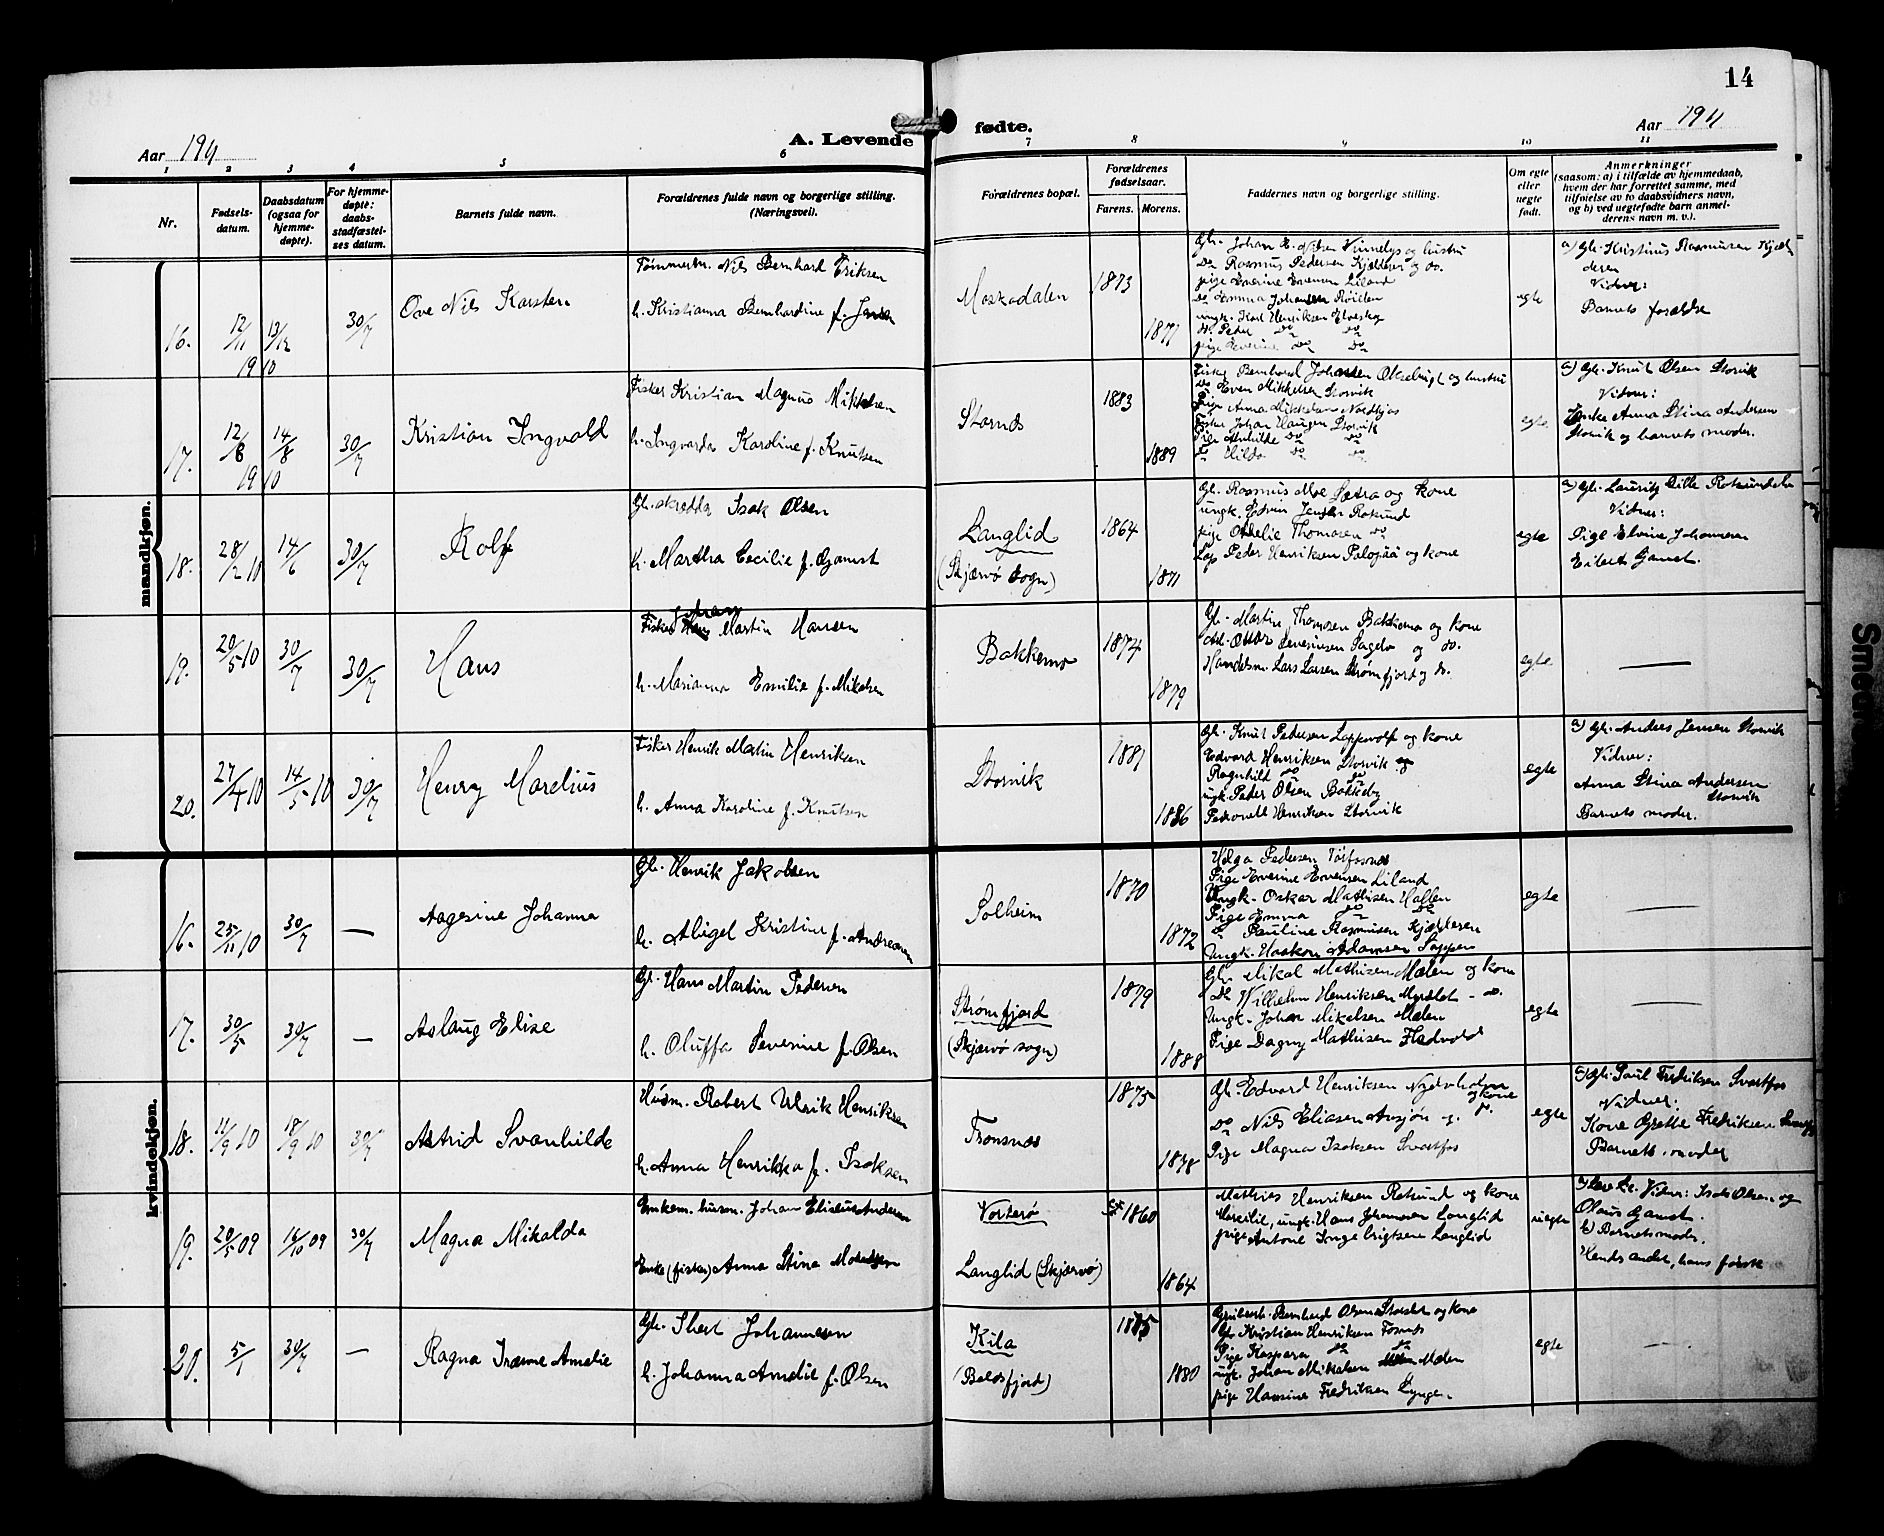 14
Aar 1911
A. Levende
fødte.
Aar 1911
1 2 3 4 5 6 7 8 9 10 11
Nr.
Fødsels-
datum.
Daabsdatum
(ogsaa for
hjemme-
døpte).
For hjemme-
døpte:
daabs-
stadfæstel-
ses datum.
Barnets fulde navn.
Forældrenes fulde navn og borgerlige stilling.
(Næringsvei).
Forældrenes bopæl.
Forældrenes
fødselsaar.
Farens. Morens.
Faddernes navn og borgerlige stilling.
Om egte
eller
uegte
født.
Anmerkninger
(saasom: a) i tilfælde av hjemmedaab,
hvem der har forrettet samme, med
tilføielse av to daabsvidners navn,
og b) ved uegtefødte barn anmel-
derens navn m. v.).
mandkjøn.
16. 12/11 1910 13/12 30/7
Ove Nils Karsten
Tømmerm. Nils Bernhard Eriksen
h. Kristianna Bernhardine f. Jensen
Moskodalen
1873
1871
Gb. Johan E. Nilsen Vinnelys og hustru
Do Rasmus Pedersen Kjelleren og do.
pige Everine Evensen Liland
Do Emma Johansen Røielen
ungk. Karl Henriksen Elveskog
Do Peder do do
pige Severine do do
egte
a) Gb. Kristinus Rasmussen Kjæl-
deren
Vidner:
Barnets forældre
17. 12/8 1910 14/8 30/7
Kristian Ingvald
Fisker Kristian Magnus Mikkelsen
h. Ingvarda Karoline f. Knutsen
Stornes
1883
1889
Fisker Bernhard Johansen Oksebugt og hustru
Do Even Mikkelsen Storvik
Pige Anna Mikkelsen
Fisker Johan Haugen Storvik
Pige do do
Do Hilda do do
egte
a) Gb. Knut Olsen Storvik
Vidner:
Enke Anna Stina Andersen
Storvik og barnets moder.
18. 28/2 10 14/6 30/7
Rolf
Gb. skrædder Isak Olsen
h. Martha Cecilie f. Gamst
Langlid
(Skjærvø Sogn)
1864
1871
Gb. Rasmus Moe Sætra og kone
ungk. Edvin Jensen Rotsund
pige Odelie Thomasen do
Lap Peder Henriksen Palojäi og kone
egte
a) Gb. Lauritz Lille Rotsundelv
Vidner:
Pige Elvine Johannesen
Eilert Gamst.
19. 20/5 10 30/7 30/7
Hans
Johan
Fisker Martin Hansen
h. Marianna Emilie f. Mikalsen
Bakkemo
1874
1879
Gb. Martin Thomasen Bakkemo og kone
Severinsen og do.
Handelsm. Lars Larsen Strømfjord og do.
egte
20. 27/4 10 14/5 10 30/7
Henry Marelius
Fisker Henrik Martin Henriksen
h. Anna Karoline f. Knutsen
Storvik
1881
1886
Gb. Knut Pedersen Lappevolf og kone
Edvard Henriksen Storvik og
Ragnhild do do
ungk. Peder Olsen Bakkeby
Petronelle Henriksen Storvik
egte
a) Gb. Anders Jensen Storvik
Vidner:
Anna Stina Andersen
Storvik
Barnets moder.
kvindekjøn.
16. 25/11 10 30/7 —
Aagesine Johanna
Gb. Henrik Jakobsen
h. Abigel Kristine f. Andreasen
Solheim
1870
1872
Helga Pedersen Torfosnes
Pige Everine Evensen Liland
Ungk. Oskar Mathisen Hallen
Pige Emma do do
Do Pauline Rasmussen Kjelleren
Ungk. Haakon Adamsen Sappen
egte
17. 30/5 30/7 —
Aslaug Elise
Gb. Hans Martin Pedersen
h. Oluffa Severine f. Olsen
Strømfjord
(Skjærvø sogn)
1879
1888
Gb. Mikal Mathisen Mælen og kone
Do Vilhelm Henriksen Myrslet - do.
Ungk. Johan Mikelsen Mælen
Pige Dagny Mathisen Fladvold
egte
18. 11/9 10 18/9 10 30/7
Astrid Svanhilde
Husm. Robert Ulrik Henriksen
h. Anna Henrikka f. Isaksen
Tronsnes
1875
1878
Gb. Edvard Henriksen
og kone
Do Nils Eliasen Ansjøn og do.
Pige Magna Isaksen Svartfos
egte
a) Gb. Paul Fredriksen Svartfos
Vidner:
Kone Grethe Fredriksen Svartfos
Barnets moder
19. 20/5 09 16/10 09 30/7
Magna Mikalda
Enkem. husm. Johan Eliseus Andersen
Enke (fisker) Anna Stina
Vorterø
Langlid (Skjærvø)
1860
1864
Mathias Henriksen Rotsund og kone
ungk. Hans Johannesen Langlid
pige Antone Ingebrigtsen Langlid
uegte
Vidner: Isak Olsen og
Olaus Gamst.
b) Barnets moder.
Hendes andet, hans første
20. 5/1 30/7 —
Ragna Irene Amelie
Gb. Johannesen
h. Johanna Amelie f. Olsen
Kila
(Balsfjord)
1885
1880
Bernhard Olsen Storslet og kone
Gb. Kristian Henriksen
Pige Kaspara do do
ungk. Johan Mikkelsen Mælen
pige Hansine Fredriksen Lyngen
egte